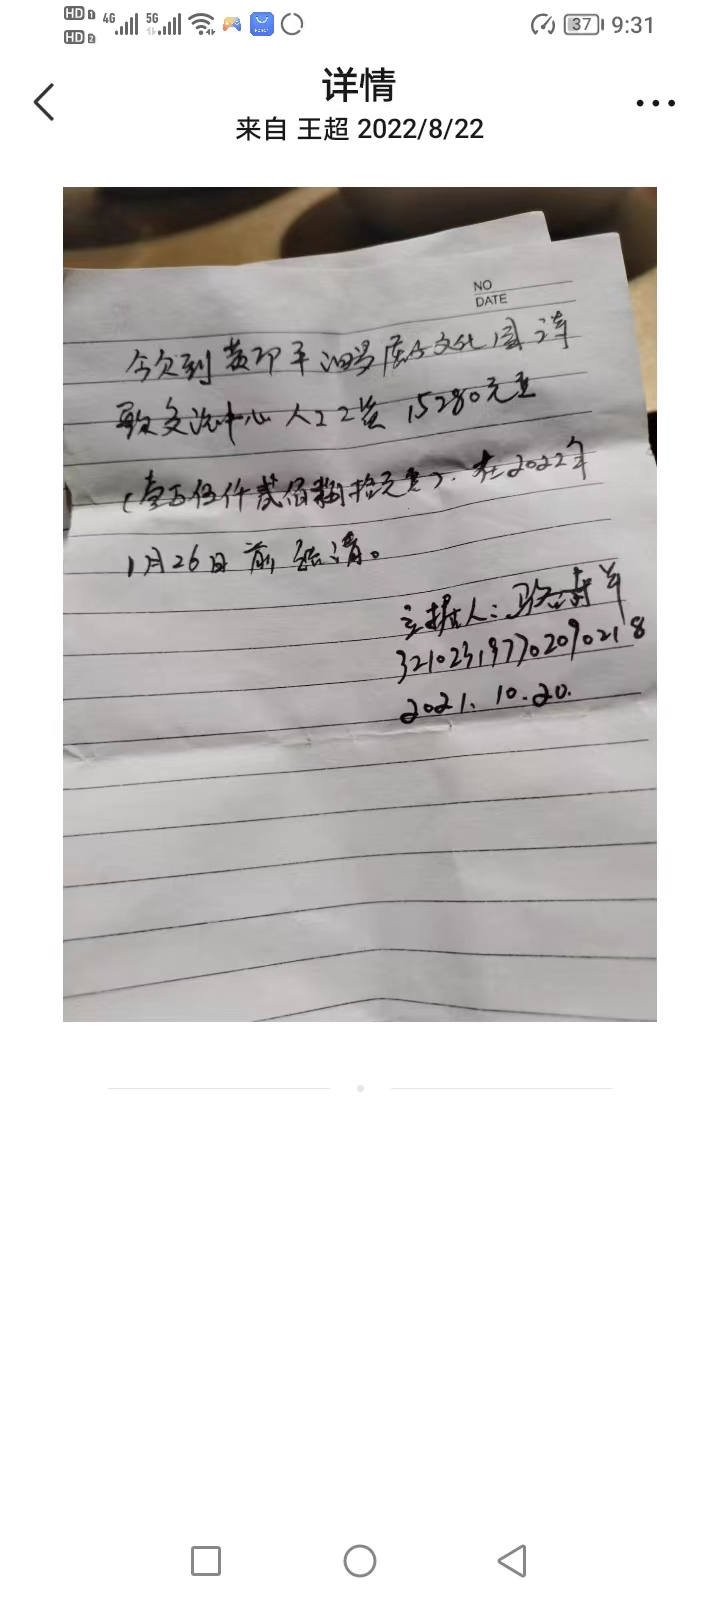 HD 1 4G 5G HD 2 37 9:31
详情
来自 王超 2022/8/22
NO
DATE
今欠到黄卯平 文化园诗
歌交流中心人工工资15280元正
(壹万伍仟贰佰捌拾元正). 在2022年
1月26日前结清。
立据人:骆寿军
321023197702090218
2021.10.20.